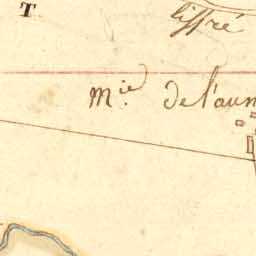 T
liffré
Mie. de l'aun